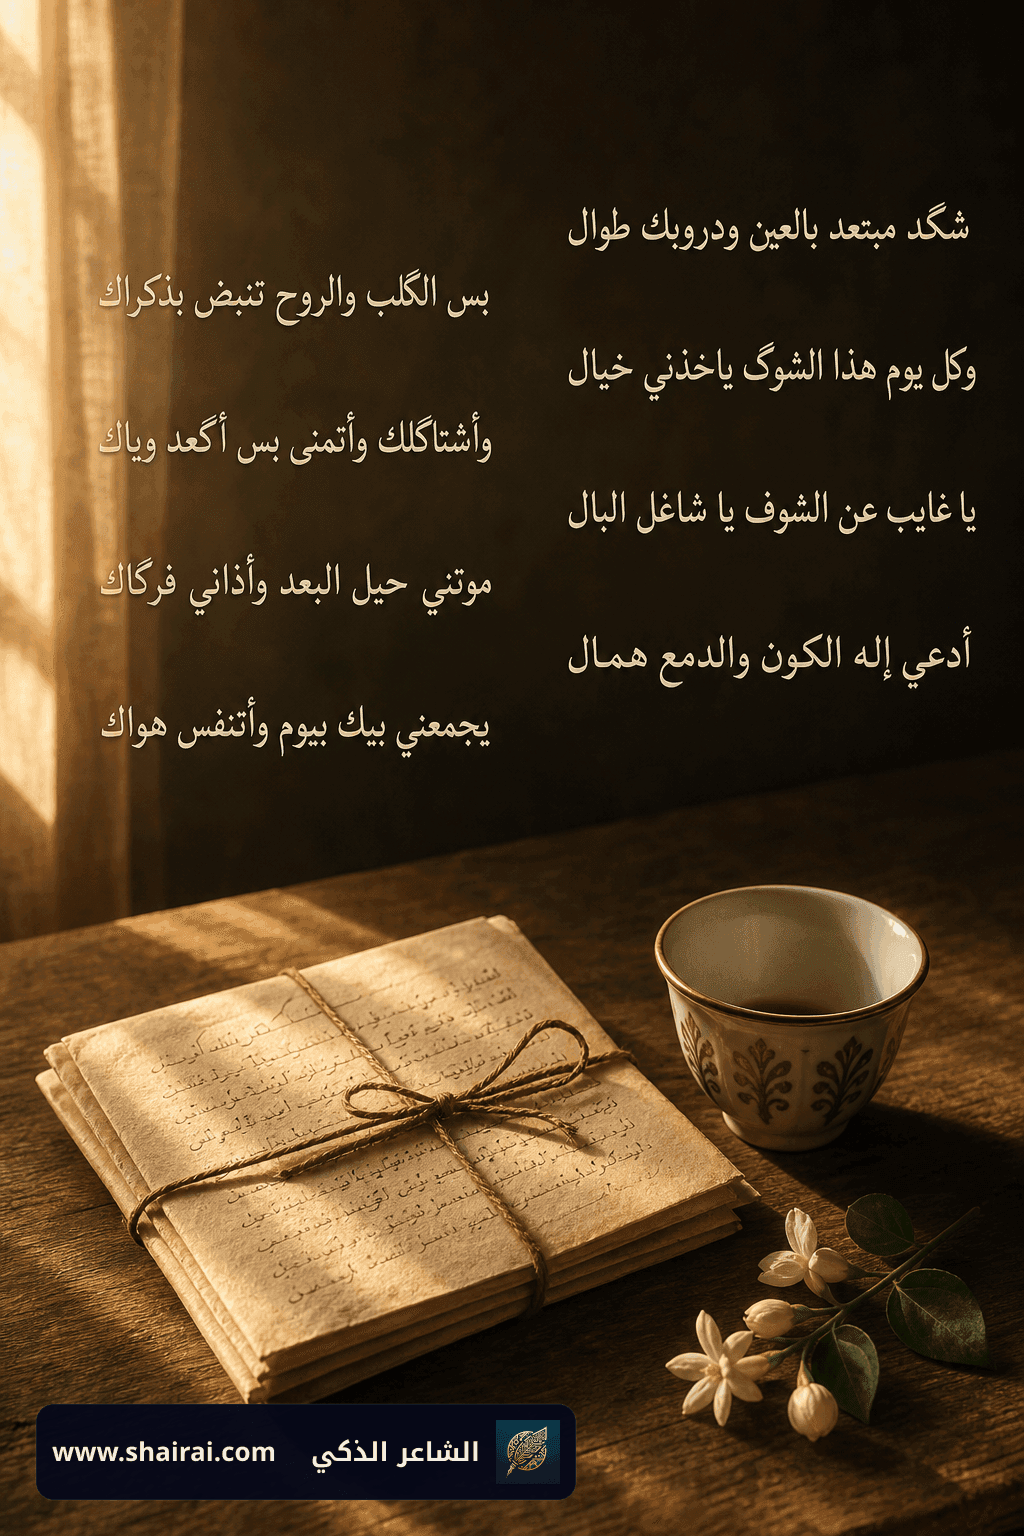 شگد مبتعد بالعين ودروبك طوال
بس الگلب والروح تنبض بذكراك
وكل يوم هذا الشوگ ياخذني خيال
وأشتاگلك وأتمنى بس أگعد وياك
يا غايب عن الشوف يا شاغل البال
موتني حيل البعد وأذاني فرگاك
أدعي إله الكون والدمع همال
يجمعني بيك بيوم وأتنفس هواك
www.shairai.com الشاعر الذكي